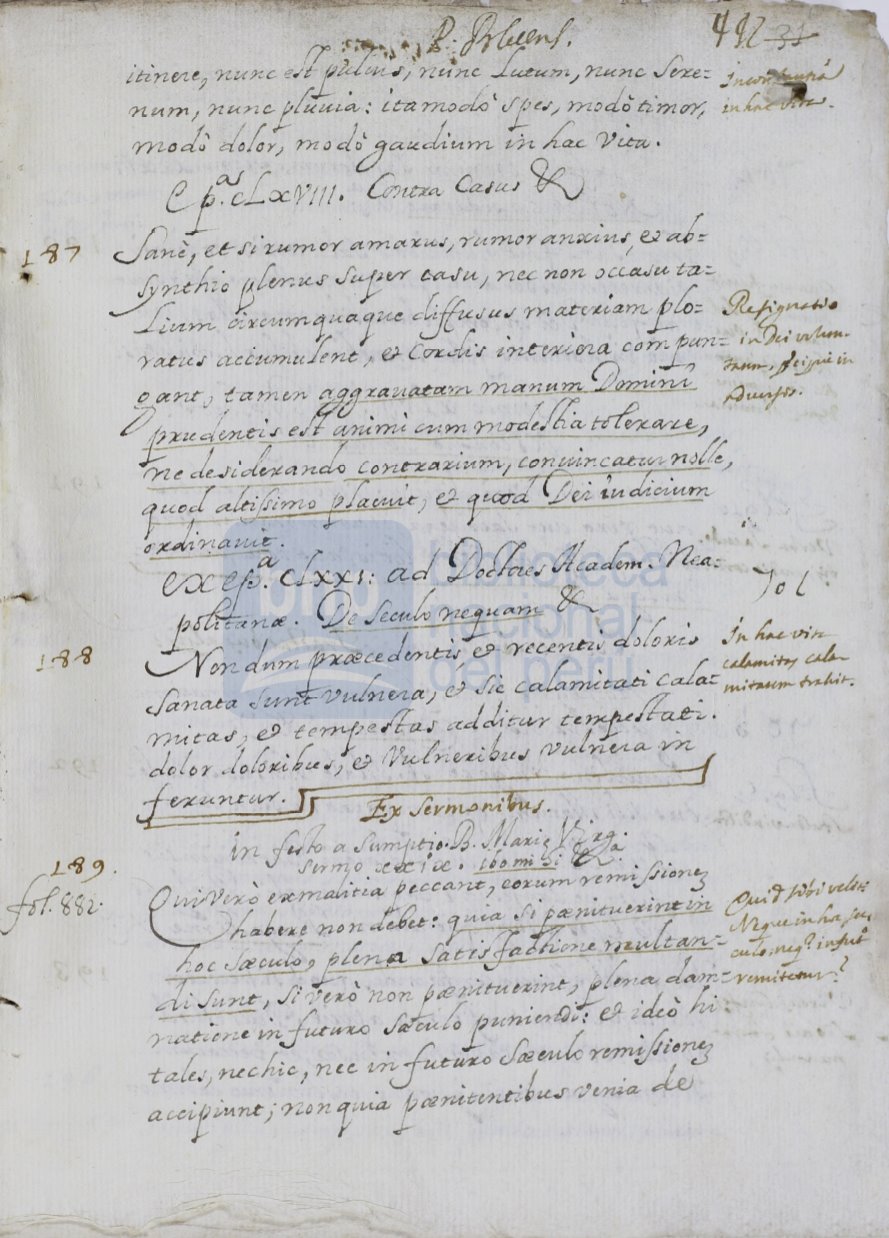 P. Blesens.
492 31
itinere, nunc est pulvis, nunc Lutum, nunc Sere=
num, nunc pluvia: ita modò spes, modò timor,
modò dolor, modò gaudium in hac Vita.
in hac vita.
Epªs. CLXVIII. Contra Casus &
187
Sanè, et si rumor amarus, rumor anxius, & ab=
synthio plenus super casu, nec non occasu ta=
Lium circumquaque diffusus materiam plo=
ratus accumulent, & Cordis interiora compun=
gant, tamen aggravatam manum Domini
prudentis est animi cum modestia tolerare,
ne desiderando contrarium, convincatur nolle,
quod altissimo placuit, & quod Dei iudicium
ordinavit.
Resignatio
in Dei volun-
tatem, precipuè in
adversis.
ex epª. CLXXI: ad Doctores Academ. Nea=
politanæ. De seculo nequam &
188
Nondum præcedentis, & recentis doloris
sanata sunt vulnera, & sic calamitati cala=
mitas, & tempestas additur tempestati.
dolor doloribus, & Vulneribus vulnera in
feruntur.
In hac vita
calamitas cala-
mitatem trahit.
Ex Sermonibus.
in festo assumptio. B. Marię Virg.
Sermo xxix.
189.
fol. 882.
Qui Verò ex malitia peccant, eorum remissionę
habere non debet: quia si pænituerint in
hoc sæculo, plena satisfactione multan=
di sunt, si verò non pænituerint, plena dam=
natione in futuro sæculo puniendi: & ideò hi
tales, nec hic, nec in futuro sæculo remissionę
accipiunt; non quia pænitentibus venia de
Quid sibi velit:
Neque in hoc sæ-
culo, neq; in fut.
remitetur?
biblioteca
nacional
del perú
bnp